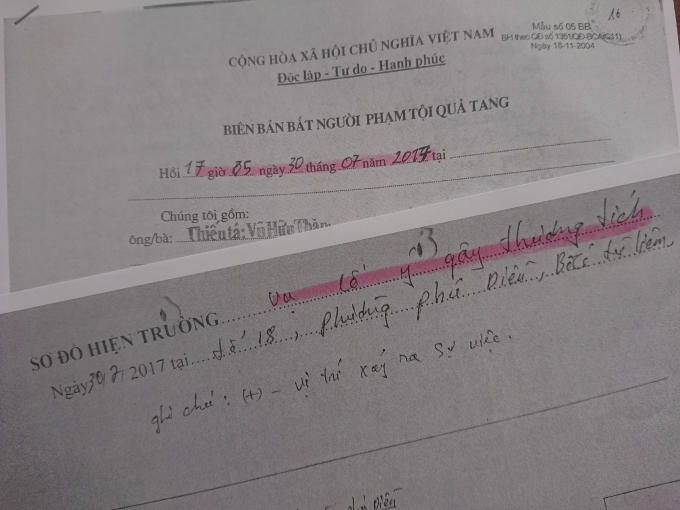 16
Mẫu số 05 BB
BH theo QĐ số 1351/QĐ-BCA(C11)
Ngày 18-11-2004
CỘNG HÒA XÃ HỘI CHỦ NGHĨA VIỆT NAM
Độc lập - Tự do - Hạnh phúc
BIÊN BẢN BẮT NGƯỜI PHẠM TỘI QUẢ TANG
Hồi 17 giờ 05 ngày 30 tháng 07 năm 2017 tại
Chúng tôi gồm:
ông/bà: Thiếu tá: Vũ Hữu
SƠ ĐỒ HIỆN TRƯỜNG Vụ cố ý gây thương tích
Ngày 30/7/2017 tại tổ 18, phường phú Diễn, Bắc từ liêm
ghi chú: (+) - vị trí xảy ra sự việc.
Diễn